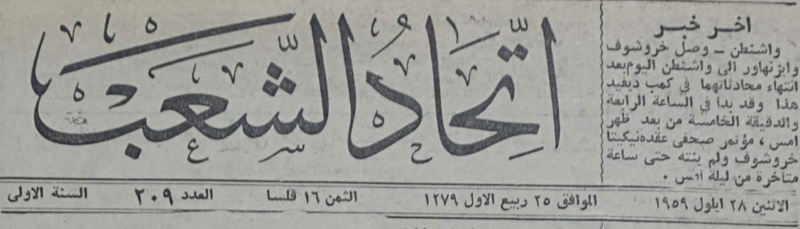 اتحاد الشعب
اخر خبر
واشنطن ــ وصل خروشوف
وايزنهاور الى واشنطن اليوم بعد
انتهاء محادثاتهما في كمب ديفيد
هذا وقد بدا في الساعة الرابعة
والدقيقة الخامسة من بعد ظهر
امس ، مؤتمر صحفي عقده نيكيتا
خروشوف ولم ينته حتى ساعة
متاخرة من ليلة امس .
الاثنين ٢٨ ايلول ١٩٥٩ الموافق ٢٥ ربيع الاول ١٢٧٩ الثمن ١٦ فلسا العدد ٢٠٩ السنة الاولى